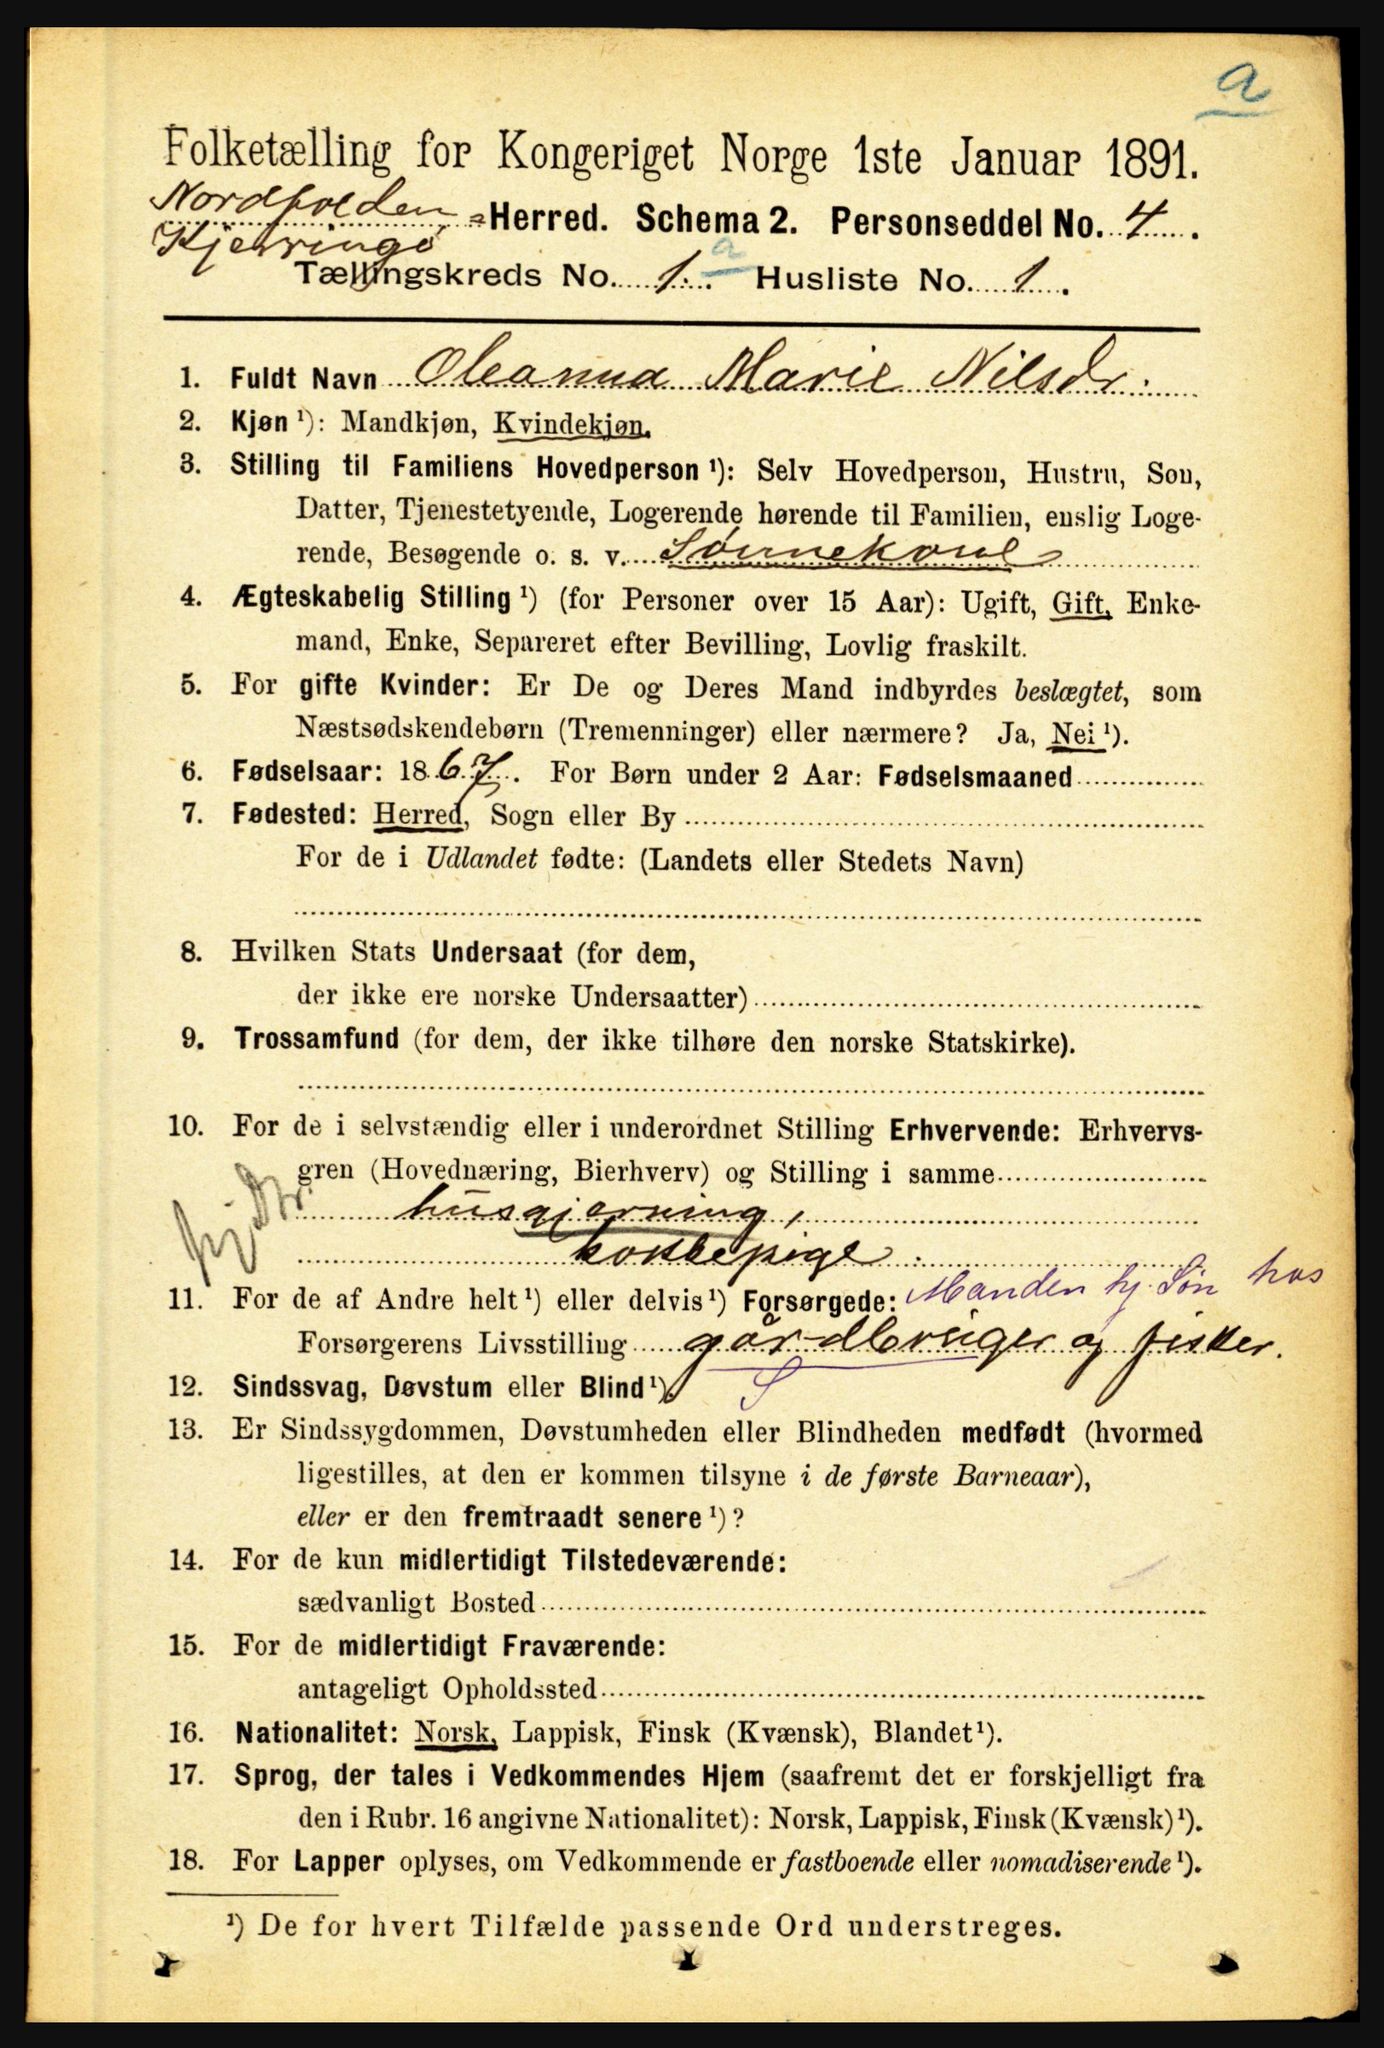 a
Folketælling for Kongeriget Norge 1ste Januar 1891.
Nordfolden
Kjerringø
-Herred. Schema 2. Personseddel No. 4.
Tællingskreds No. 1. a Husliste No. 1.
1. Fuldt Navn Oleanna Marie Nilsdr.
2. Kjøn ¹): Mandkjøn, Kvindekjøn.
3. Stilling til Familiens Hovedperson ¹): Selv Hovedperson, Hustru, Søn,
Datter, Tjenestetyende, Logerende hørende til Familien, enslig Loge-
rende, Besøgende o. s. v. Sønnekone
4. Ægteskabelig Stilling ¹) (for Personer over 15 Aar): Ugift, Gift, Enke-
mand, Enke, Separeret efter Bevilling, Lovlig fraskilt.
5. For gifte Kvinder: Er De og Deres Mand indbyrdes beslægtet, som
Næstsødskendebørn (Tremenninger) eller nærmere? Ja, Nei ¹).
6. Fødselsaar: 1867. For Børn under 2 Aar: Fødselsmaaned
7. Fødested: Herred, Sogn eller By
For de i Udlandet fødte: (Landets eller Stedets Navn)
8. Hvilken Stats Undersaat (for dem,
der ikke ere norske Undersaatter)
9. Trossamfund (for dem, der ikke tilhøre den norske Statskirke).
10. For de i selvstændig eller i underordnet Stilling Erhvervende: Erhvervs-
gren (Hovednæring, Bierhverv) og Stilling i samme
husgjerning,
11. For de af Andre helt ¹) eller delvis ¹) Forsørgede: Manden hj. Søn hos
Forsørgerens Livsstilling gårdbruger og fisker.
12. Sindssvag, Døvstum eller Blind ¹). S
13. Er Sindssygdommen, Døvstumheden eller Blindheden medfødt (hvormed
ligestilles, at den er kommen tilsyne i de første Barneaar),
eller er den fremtraadt senere ¹)?
14. For de kun midlertidigt Tilstedeværende:
sædvanligt Bosted
15. For de midlertidigt Fraværende:
antageligt Opholdssted
16. Nationalitet: Norsk, Lappisk, Finsk (Kvænsk), Blandet ¹).
17. Sprog, der tales i Vedkommendes Hjem (saafremt det er forskjelligt fra
den i Rubr. 16 angivne Nationalitet): Norsk, Lappisk, Finsk (Kvænsk) ¹).
18. For Lapper oplyses, om Vedkommende er fastboende eller nomadiserende ¹).
¹) De for hvert Tilfælde passende Ord understreges.